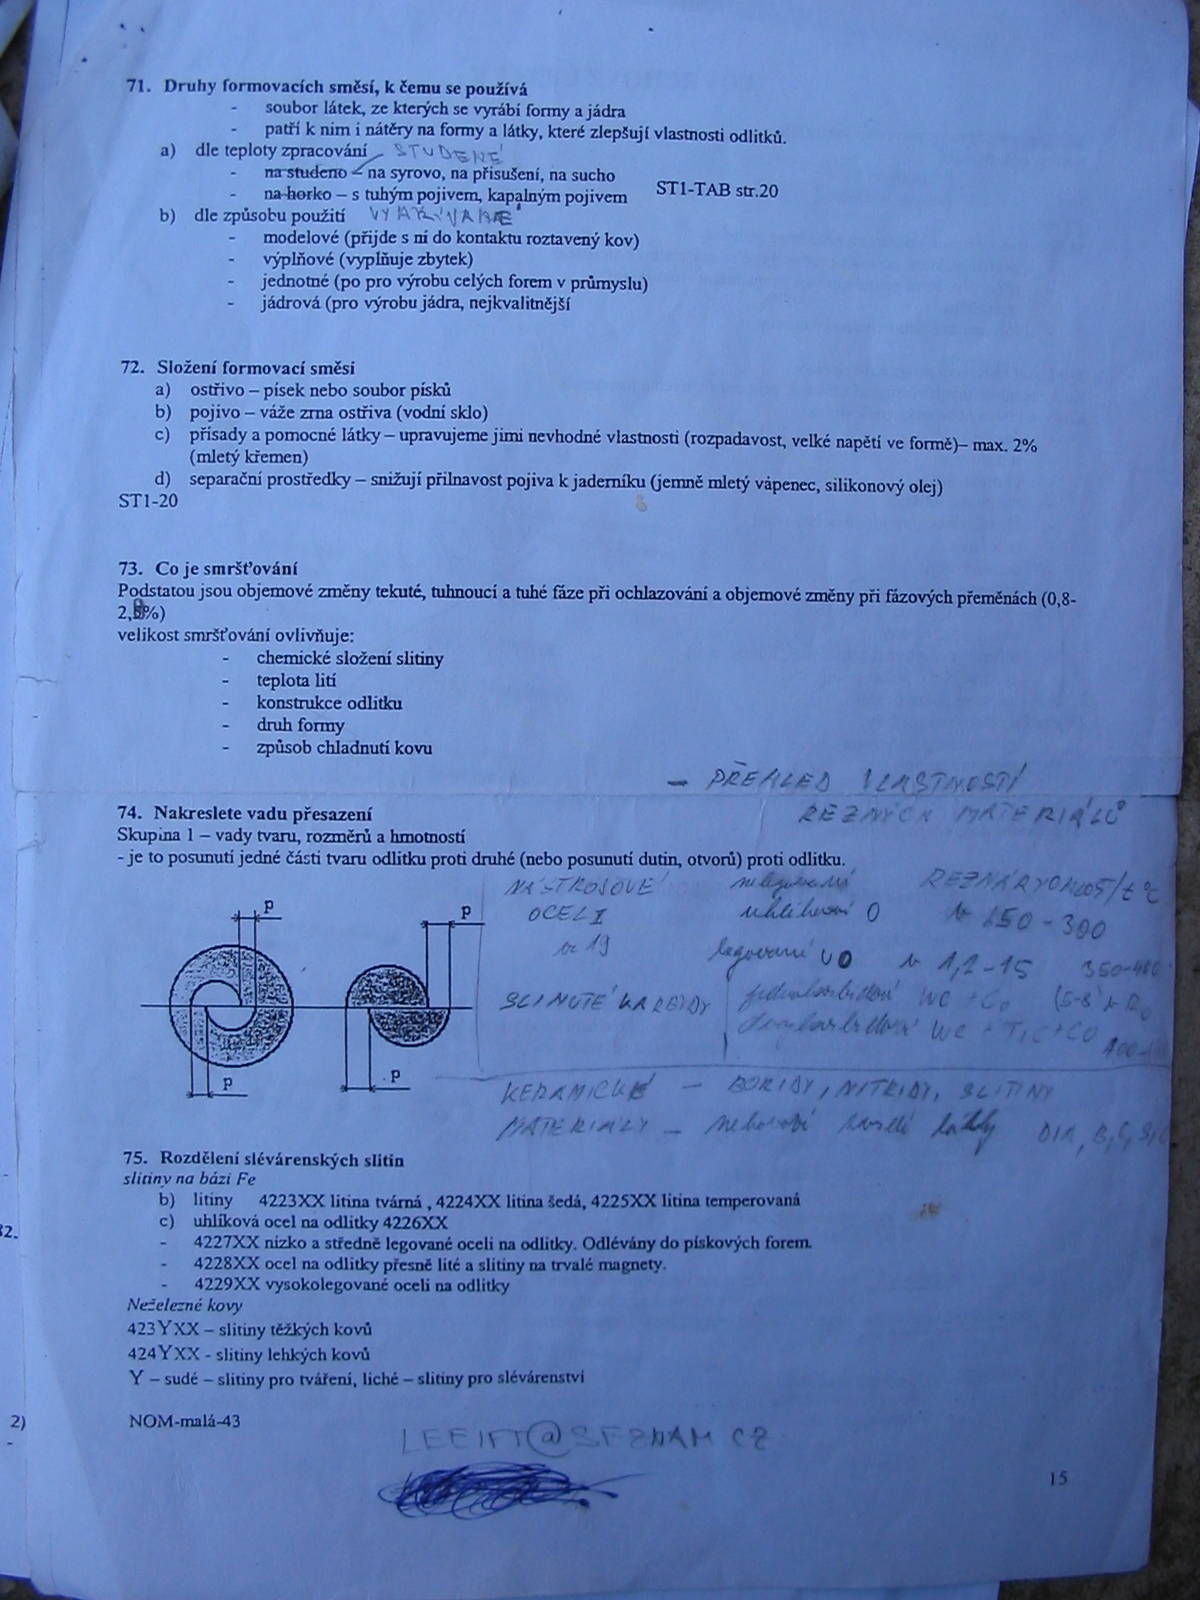 71. Druhy formovacích směsí, k čemu se používá
- soubor látek, ze kterých se vyrábí formy a jádra
- patří k nim i nátěry na formy a látky, které zlepšují vlastnosti odlitků.
a) dle teploty zpracování STUDENÉ
- na studeno – na syrovo, na přisušení, na sucho
- na horko – s tuhým pojivem, kapalným pojivem ST1-TAB str.20
b) dle způsobu použití
- modelové (přijde s ní do kontaktu roztavený kov)
- výplňové (vyplňuje zbytek)
- jednotné (po pro výrobu celých forem v průmyslu)
- jádrová (pro výrobu jádra, nejkvalitnější
72. Složení formovací směsi
a) ostřivo – písek nebo soubor písků
b) pojivo – váže zrna ostřiva (vodní sklo)
c) přísady a pomocné látky – upravujeme jimi nevhodné vlastnosti (rozpadavost, velké napětí ve formě)– max. 2%
(mletý křemen)
d) separační prostředky – snižují přilnavost pojiva k jaderníku (jemně mletý vápenec, silikonový olej)
ST1-20
73. Co je smršťování
Podstatou jsou objemové změny tekuté, tuhnoucí a tuhé fáze při ochlazování a objemové změny při fázových přeměnách (0,8-
2, %)
velikost smršťování ovlivňuje:
- chemické složení slitiny
- teplota lití
- konstrukce odlitku
- druh formy
- způsob chladnutí kovu
- PŘEHLED VLASTNOSTÍ
ŘEZNÝCH MATERIÁLŮ
74. Nakreslete vadu přesazení
Skupina 1 – vady tvaru, rozměrů a hmotností
- je to posunutí jedné části tvaru odlitku proti druhé (nebo posunutí dutin, otvorů) proti odlitku.
NÁSTROJOVÉ nelegované
OCELI uhlíková 150-300
19 legované 1,2-15
SLINUTÉ KARBIDY WC + Co
WC + TiC + CO
p
p
p
p
KERAMICKÉ - BORIDY, NITRIDY, SLITINY
MATERIÁLY - DIA
75. Rozdělení slévárenských slitin
slitiny na bázi Fe
b) litiny 4223XX litina tvárná , 4224XX litina šedá, 4225XX litina temperovaná
c) uhlíková ocel na odlitky 4226XX
- 4227XX nízko a středně legované oceli na odlitky. Odlévány do pískových forem.
- 4228XX ocel na odlitky přesně lité a slitiny na trvalé magnety.
- 4229XX vysokolegované oceli na odlitky
Neželezné kovy
423YXX – slitiny těžkých kovů
424YXX - slitiny lehkých kovů
Y – sudé – slitiny pro tváření, liché – slitiny pro slévárenství
2)
NOM-malá-43
LEEIFT@SEZNAM CZ
15